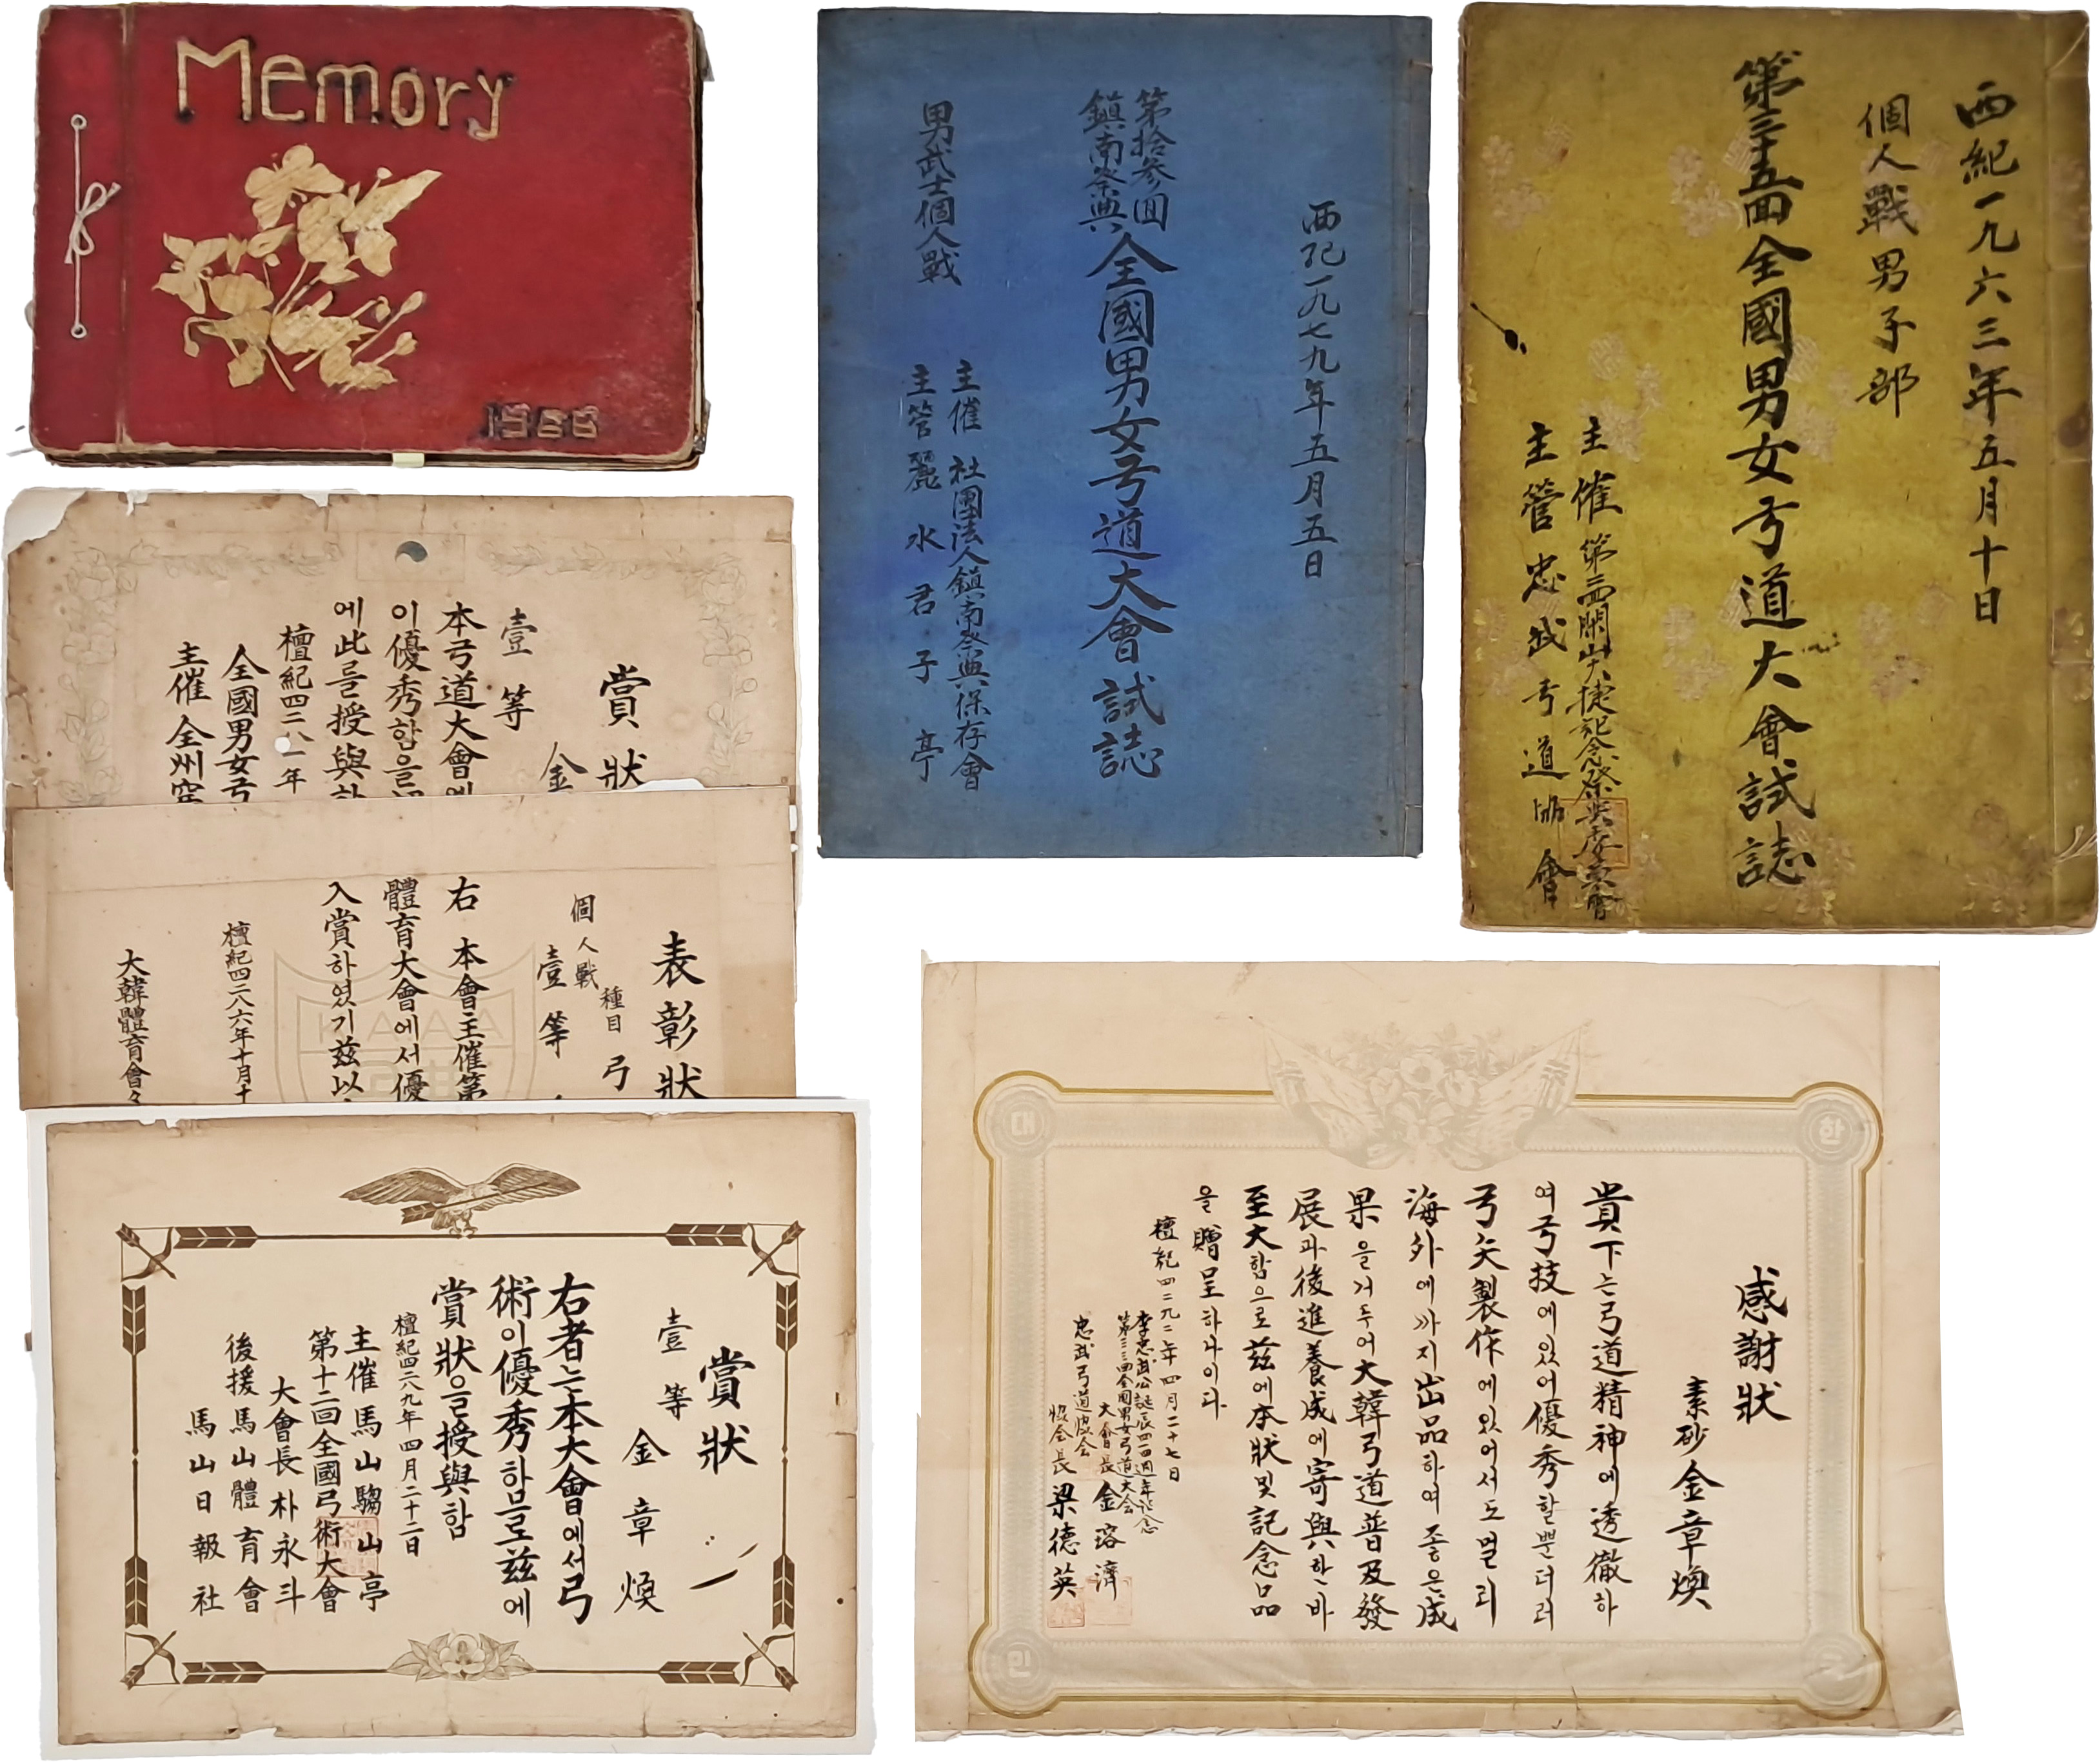 Memory
1966
西紀一九七九年五月五日
第拾參回
鎭南祭典
全國男女弓道大會試誌
男武士個人戰
主催 社團法人鎭南祭典保存會
主管 麗水君子亭
西紀一九六三年五月十日
個人戰男子部
全國男女弓道大會試誌
主催
主管忠武弓道協會
賞狀
壹等
金
本弓道大會에
이優秀함을
에此를授與하
檀紀四二八一年
全國男女弓
主催 全州
表彰狀
種目 弓
個人戰
壹等
右 本會主催第
體育大會에서優
入賞하였기玆以
檀紀四二八六年十月十
大韓體育會
賞狀
壹等
金章煥
右者는本大會에서弓
術이優秀하므로玆에
賞狀을授與함
檀紀四二八九年四月二十二日
主催 馬山騶山亭
第十二回全國弓術大會
大會長 朴永斗
後援 馬山體育會
馬山日報社
感謝狀
素砂金章煥
貴下는弓道精神에透徹하
여弓技에있어優秀할뿐더러
弓矢製作에있어서도멀리
海外에까지出品하여좋은成
果을거두어大韓弓道普及發
展과後進養成에寄與한바
至大함으로玆에本狀및記念品
을贈呈하나이다
檀紀四二九二年四月二十七日
李忠武公誕辰四一四週年記念
全國男女弓道大会
大會長 金瑢濟
忠武弓道協会
協会長 梁德英